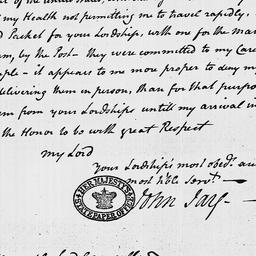 of the United States,
my Health not permitting me to travel rapidly.
Packet for your Lordship, with one for the Mar
by the Post – they were committed to my Care
it appears to me more proper to deny my
delivering them in person, than for that purpose
from your Lordships untill my arrival in
the Honor to be with great Respect
my Lord
your Lordship's most obedt. and
most h'ble Servt. –
John Jay –
HER MAJESTY'S
STATE PAPER OFFICE